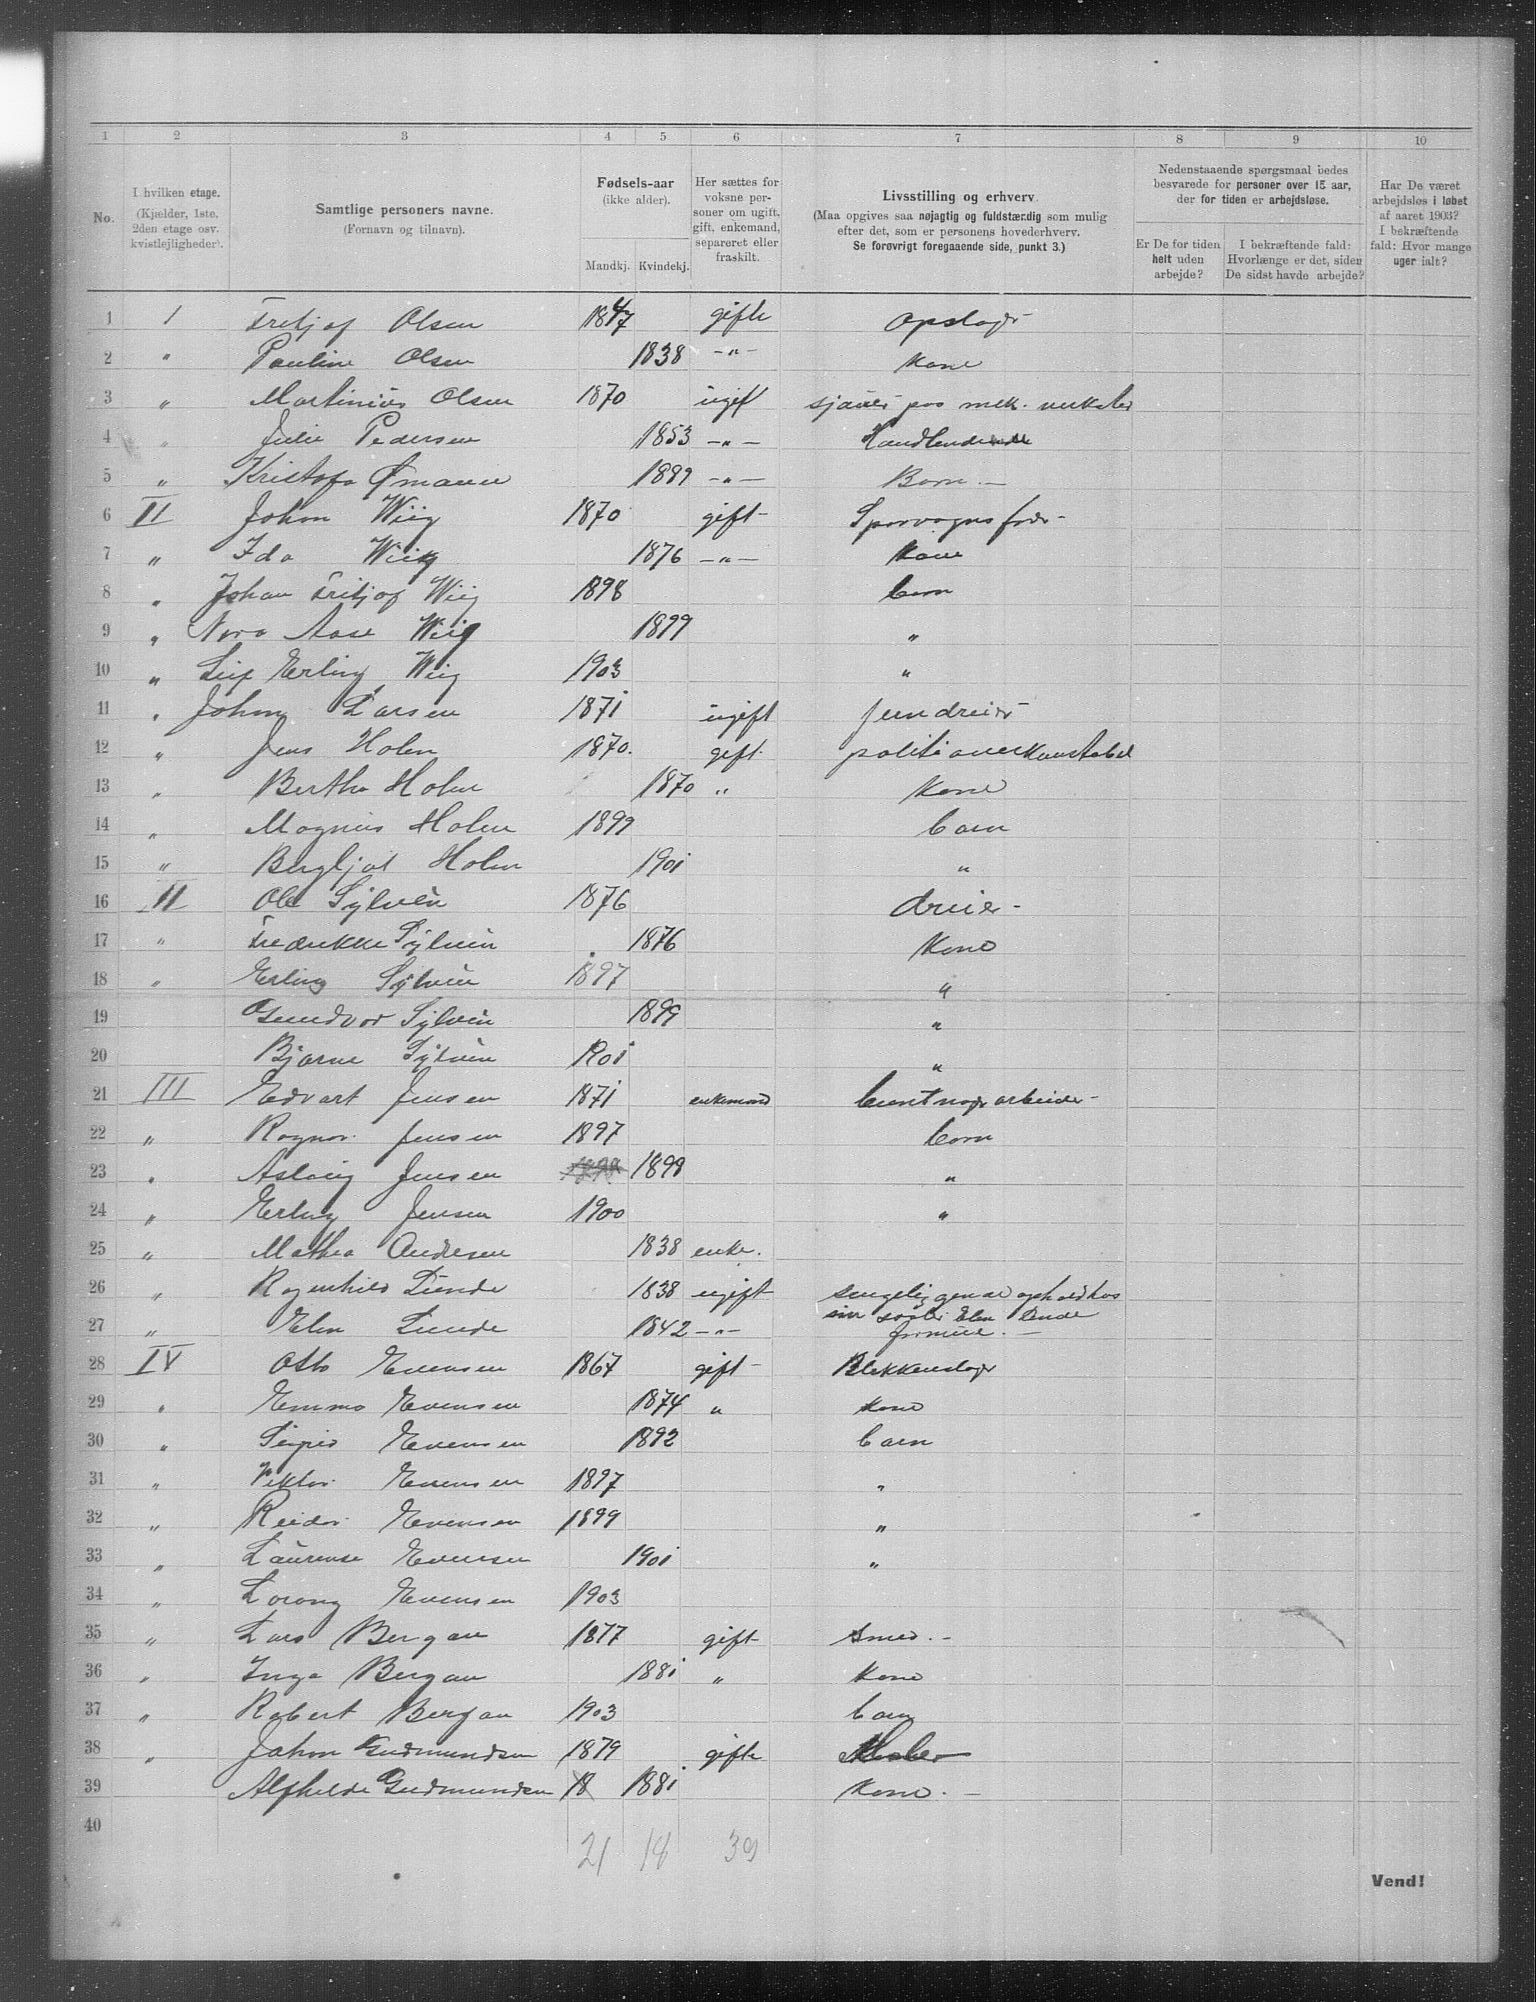 1 2 3 4 5 6 7 8 9 10
No.
I hvilken etage. (Kjælder, 1ste, 2den etage osv. kvistlejligheder).
Samtlige personers navne. (Fornavn og tilnavn).
Fødsels-aar (ikke alder). Mandkj. Kvindekj.
Her sættes for voksne personer om ugift, gift, enkemand, separeret eller fraskilt.
Livsstilling og erhverv. (Maa opgives saa nøjagtig og fuldstændig som mulig efter det, som er personens hovederhverv. Se forøvrigt foregaaende side, punkt 3.)
Nedenstaaende spørgsmaal bedes besvarede for personer over 15 aar, der for tiden er arbejdsløse.
Er De for tiden helt uden arbejde?
I bekræftende fald: Hvorlænge er det, siden De sidst havde arbejde?
Har De været arbejdsløs i løbet af aaret 1903? I bekræftende fald: Hvor mange uger ialt?
1 I Fritjof Olsen 1847 gifte
2 " Pauline Olsen 1838 -"- Kone
3 " Martinius Olsen 1870 ugift sjauer paa mek. verksted
4 " Julie Pedersen 1853 -"- Handlende
5 " Kristofa Ømann 1889 -"- Barn
6 II Johan Wiig 1870 gift Sporvognsfører
7 " Ida Wiig 1876 -"- Kone
8 " Johan Fritjof Wiig 1898 barn
9 " Nora Aase Wiig 1899 "
10 " Leif Erling Wiig 1903 "
11 " Johan Larsen 1871 ugift jerndreier
12 " Jens Holm 1870. gift politioverkonstabel
13 " Bertha Holm 1870 " Kone
14 " Magnus Holm 1899 barn
15 " Bergljot Holm 1901 "
16 II Ole Sylvèn 1876 dreier
17 " Fredrikke Sylvèn 1876 Kone
18 " Erling Sylvèn 1897 "
19 Gundvor Sylvèn 1899 "
20 Bjarne Sylvèn "
21 III Edvart Jensen 1871 enkemand
22 " Ragnar Jensen 1897 barn
23 " Aslaug Jensen 1898 "
24 " Erling Jensen 1900 "
25 " Mathea Andersen 1838 enke.
26 " Ragnhild Lunde 1838 ugift sengeliggende ophold hos
27 " Elen Lunde 1842 -"- sin søster Elen Lunde
28 IV Otto Evensen 1867 gift Blikkenslager
29 " Emma Evensen 1874 " Kone
30 " Sigrid Evensen 1892 barn
31 " Viktor Evensen 1897 "
32 " Reidar Evensen 1899 "
33 " Laurense Evensen 1901 "
34 " Evensen 1903
35 " Lars Bergan 1877 gift Smed.
36 " Inga Bergan 1881 " Kone
37 " Robert Bergan 1903 barn
38 " Johan Gudmundsen 1879 gifte
39 Alfhilde Gudmundsen 18 1881 Kone.
40
21 18 39
Vend!